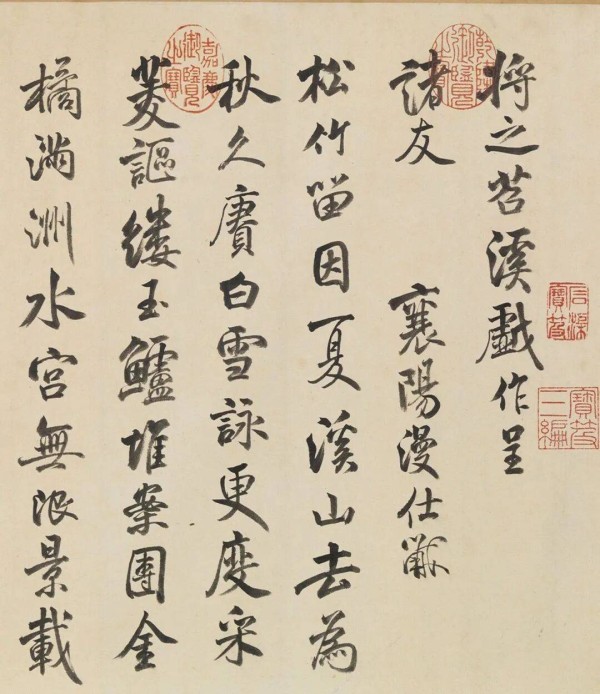 將之苕溪戲作呈
諸友 襄陽漫仕黻
松竹留因夏溪山去為
秋久賡白雪詠更度采
菱謳縷玉鱸堆案團金
橘滿洲水宮無限景載
乾隆御覽之寶
嘉慶御覽之寶
石渠寶笈
寶笈三編